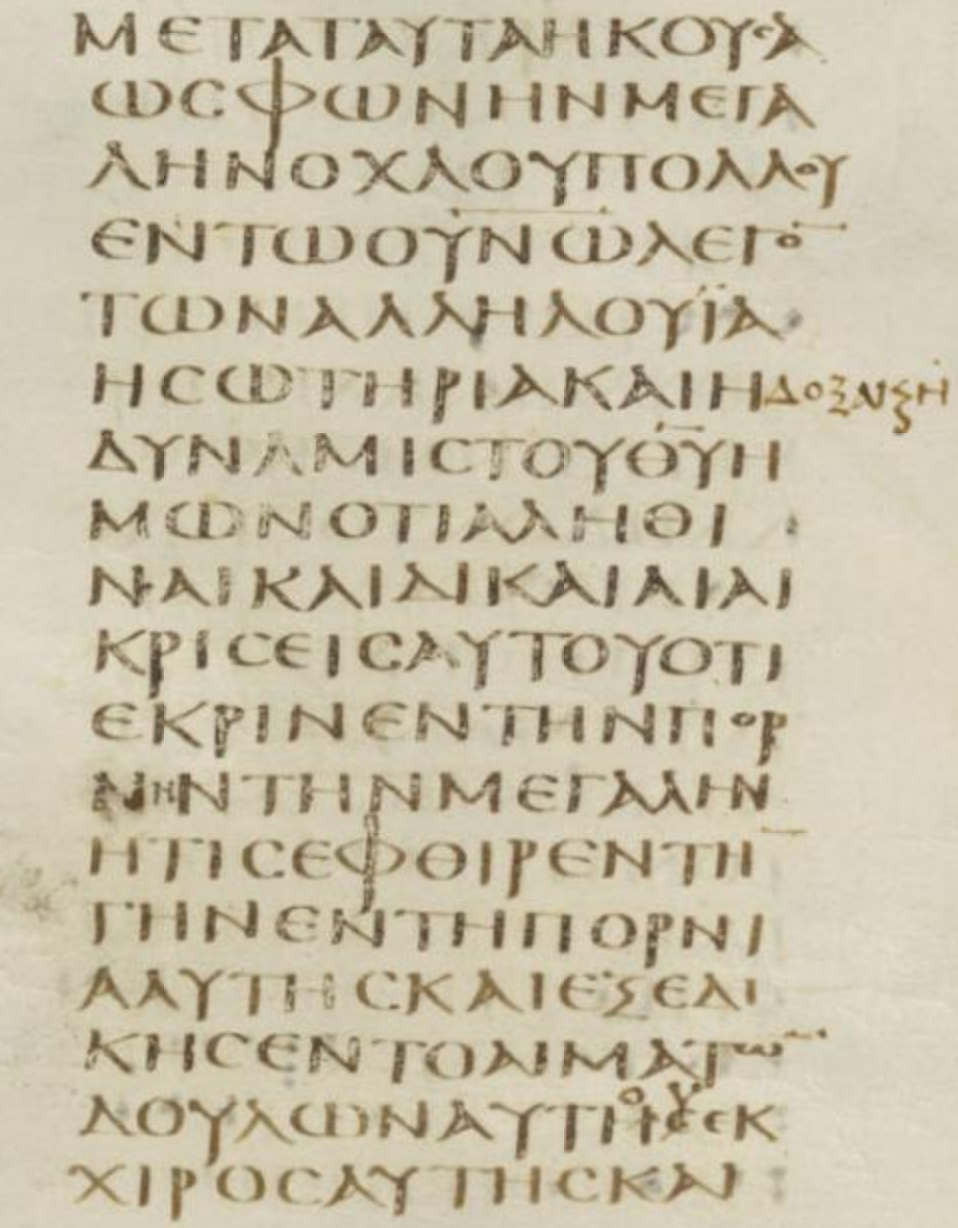 ΜΕΤΑΤΑΥΤΑΗΚΟΥΣΑ
ΩΣΦΩΝΗΝΜΕΓΑ
ΛΗΝΟΧΛΟΥΠΟΛΛΟΥ
ΕΝΤΩΟΥΝΩΛΕΓΟ̅
ΤΩΝΑΛΛΗΛΟΥΪΑ
ΗΣΩΤΗΡΙΑΚΑΙΗ ΔΟΞΑΙϚΗ
ΔΥΝΑΜΙΣΤΟΥΘ̅Υ̅Η
ΜΩΝΟΤΙΑΛΗΘΙ
ΝΑΙΚΑΙΔΙΚΑΙΑΙΑΙ
ΚΡΙΣΕΙΣΑΥΤΟΥΟΤΙ
ΕΚΡΙΝΕΝΤΗΝΠΟΡ
ΝΗΝΤΗΝΜΕΓΑΛΗΝ
ΗΤΙΣΕΦΘΙΡΕΝΤΗ̅
ΓΗΝΕΝΤΗΠΟΡΝΙ
ΑΑΥΤΗΣΚΑΙΕΞΕΔΙ
ΚΗΣΕΝΤΟΑΙΜΑΤΩ̅
ΔΟΥΛΩΝΑΥΤΗΣΕΚ
ΧΙΡΟΣΑΥΤΗΣΚΑΙ